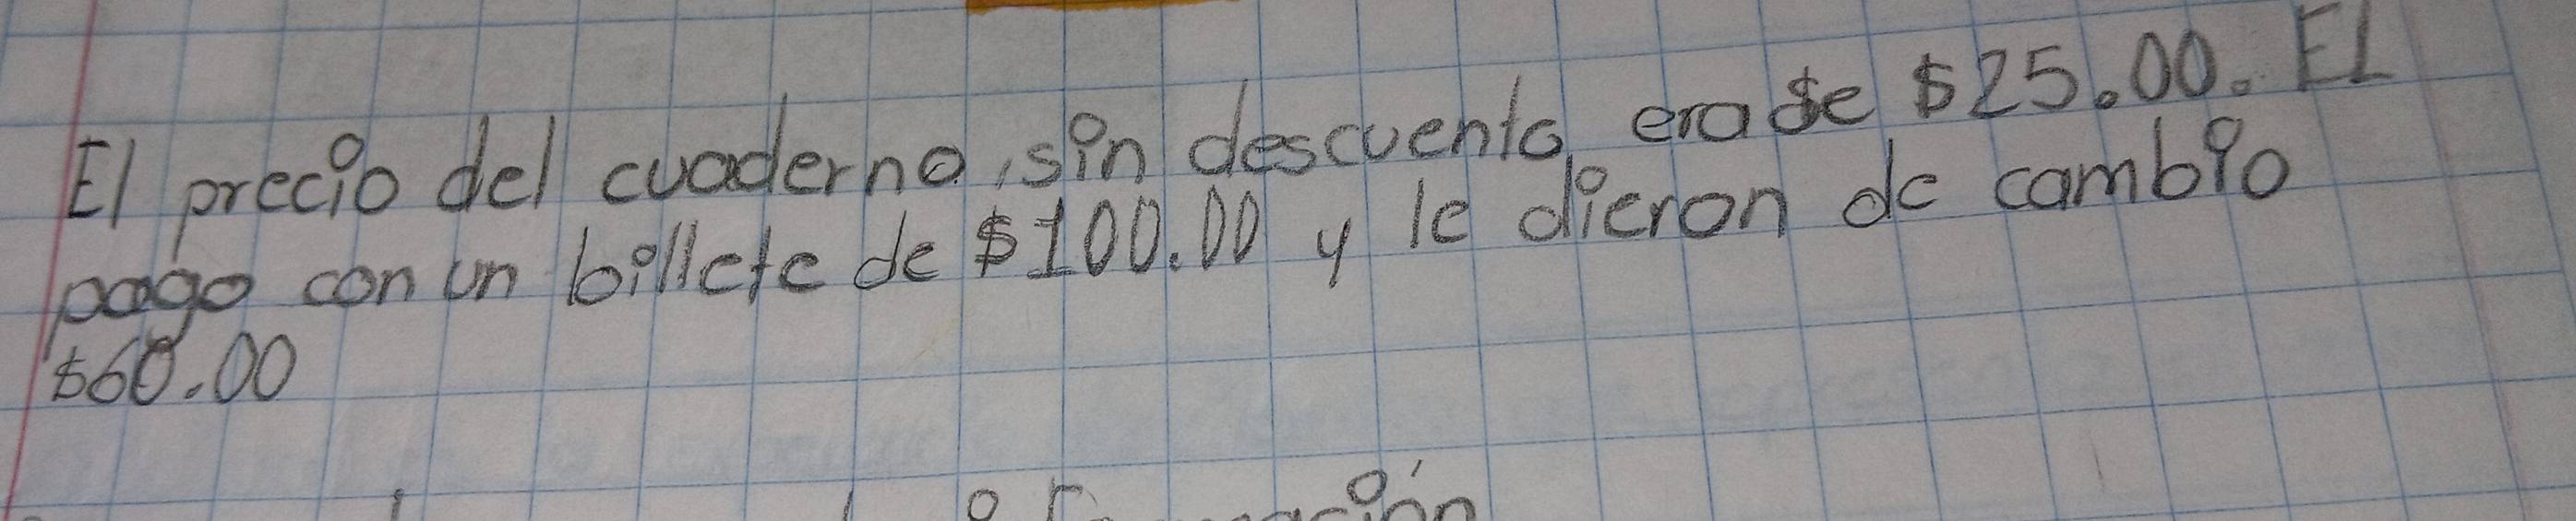 El precio del cuaderno, sin descuento, era de $25.00. El
pago con un billete de $100.00 y le dieron de cambio
$60.00